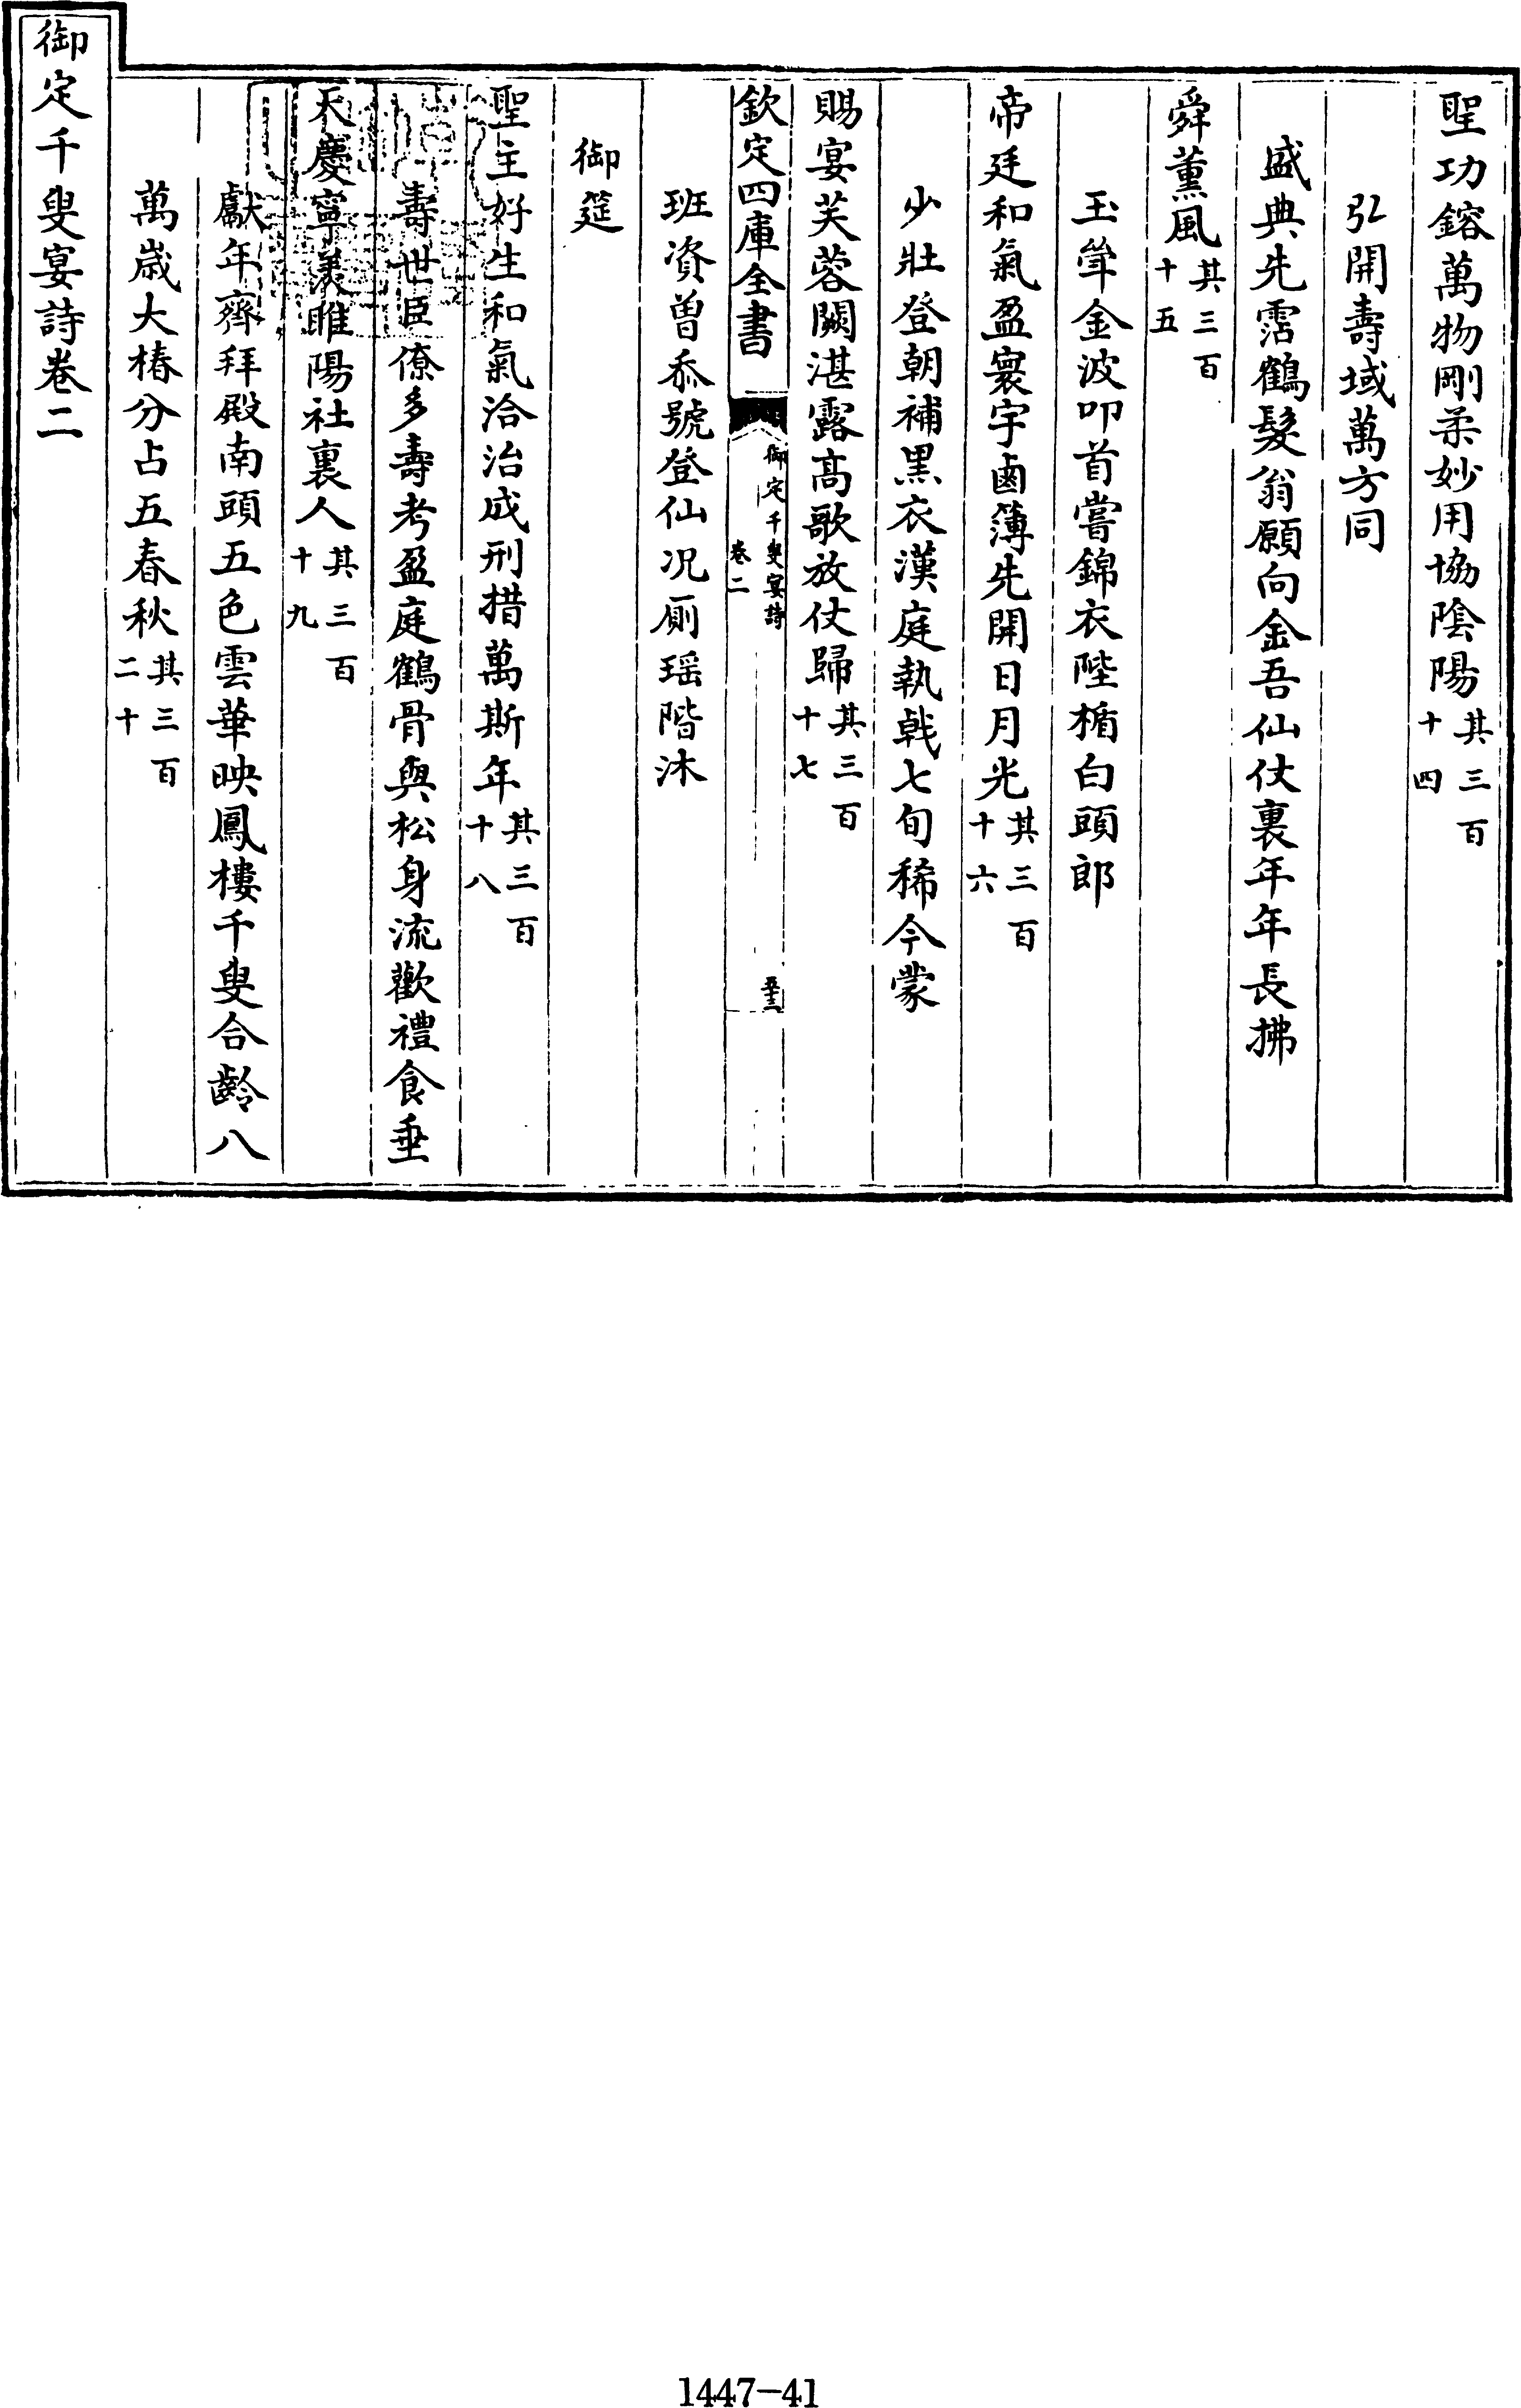 聖功鎔萬物剛柔妙用協陰陽其三百十四
弘開壽域萬方同
盛典先霑鶴髮翁願向金吾仙仗裏年年長拂
舜薰風其三百十五
玉斝金波叩首嘗錦衣陛楯白頭郎
帝廷和氣盈寰宇鹵簿先開日月光其三百十六
少壯登朝補黑衣漢庭執㦸七旬稀今蒙
賜宴芙蓉闕湛露髙歌放仗歸其三百十七
欽定四庫全書
御定千叟宴詩
卷二
班資曽忝號登仙况厠瑶階沐
御筵
聖主好生和氣洽治成刑措萬斯年其三百十八
壽世臣僚多壽考盈庭鶴骨與松身流歡禮食垂
天慶寜羨睢陽社裏人其三百十九
獻年齊拜殿南頭五色雲華映鳳樓千叟合齡八
萬嵗大椿分占五春秋其三百二十
御定千叟宴詩卷二
1447-41